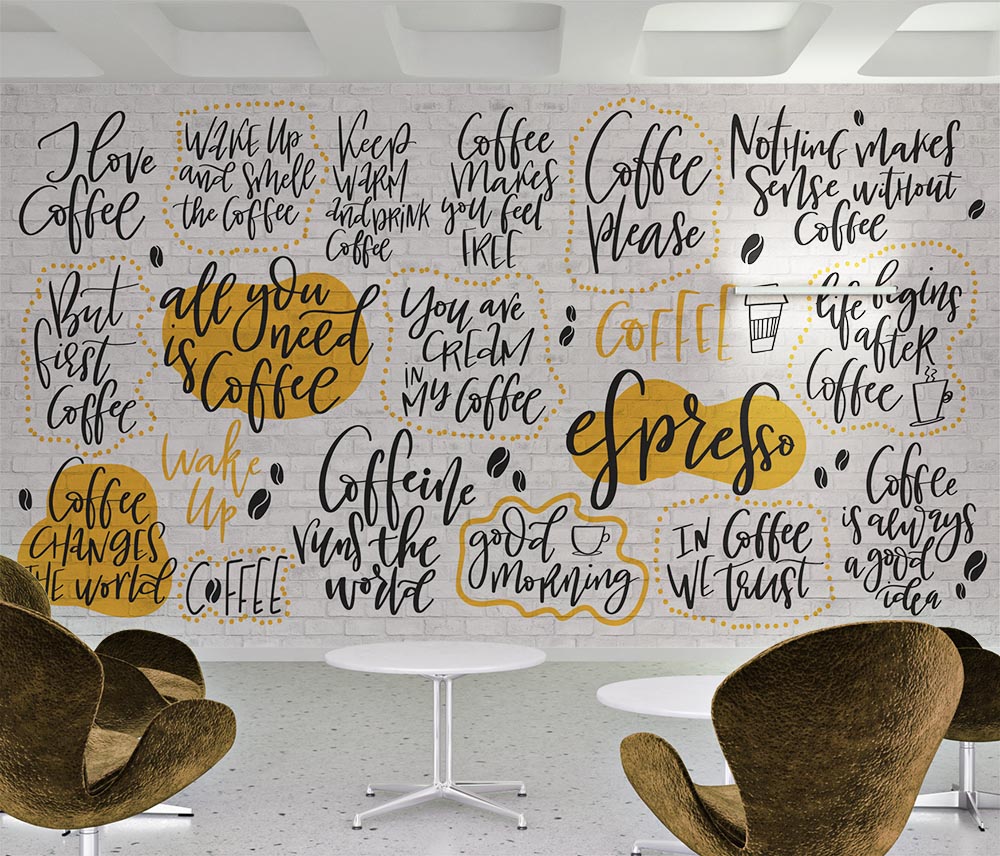 I love
Coffee
Wake Up
and smell
the Coffee
Keep
Warm
and DRINK
Coffee
Coffee
Makes
you feel
FREE
Coffee
please
Nothing makes
Sense without
Coffee
But
first
Coffee
all you
need
is
Coffee
You are
CREAM
IN
My Coffee
COFFEE
life begins
after
Coffee
espresso
Coffee
CHANGES
THE world
Wake
Up
COFFEE
Caffeine
runs the
world
good
morning
IN Coffee
WE Trust
Coffee
is always
a good
idea